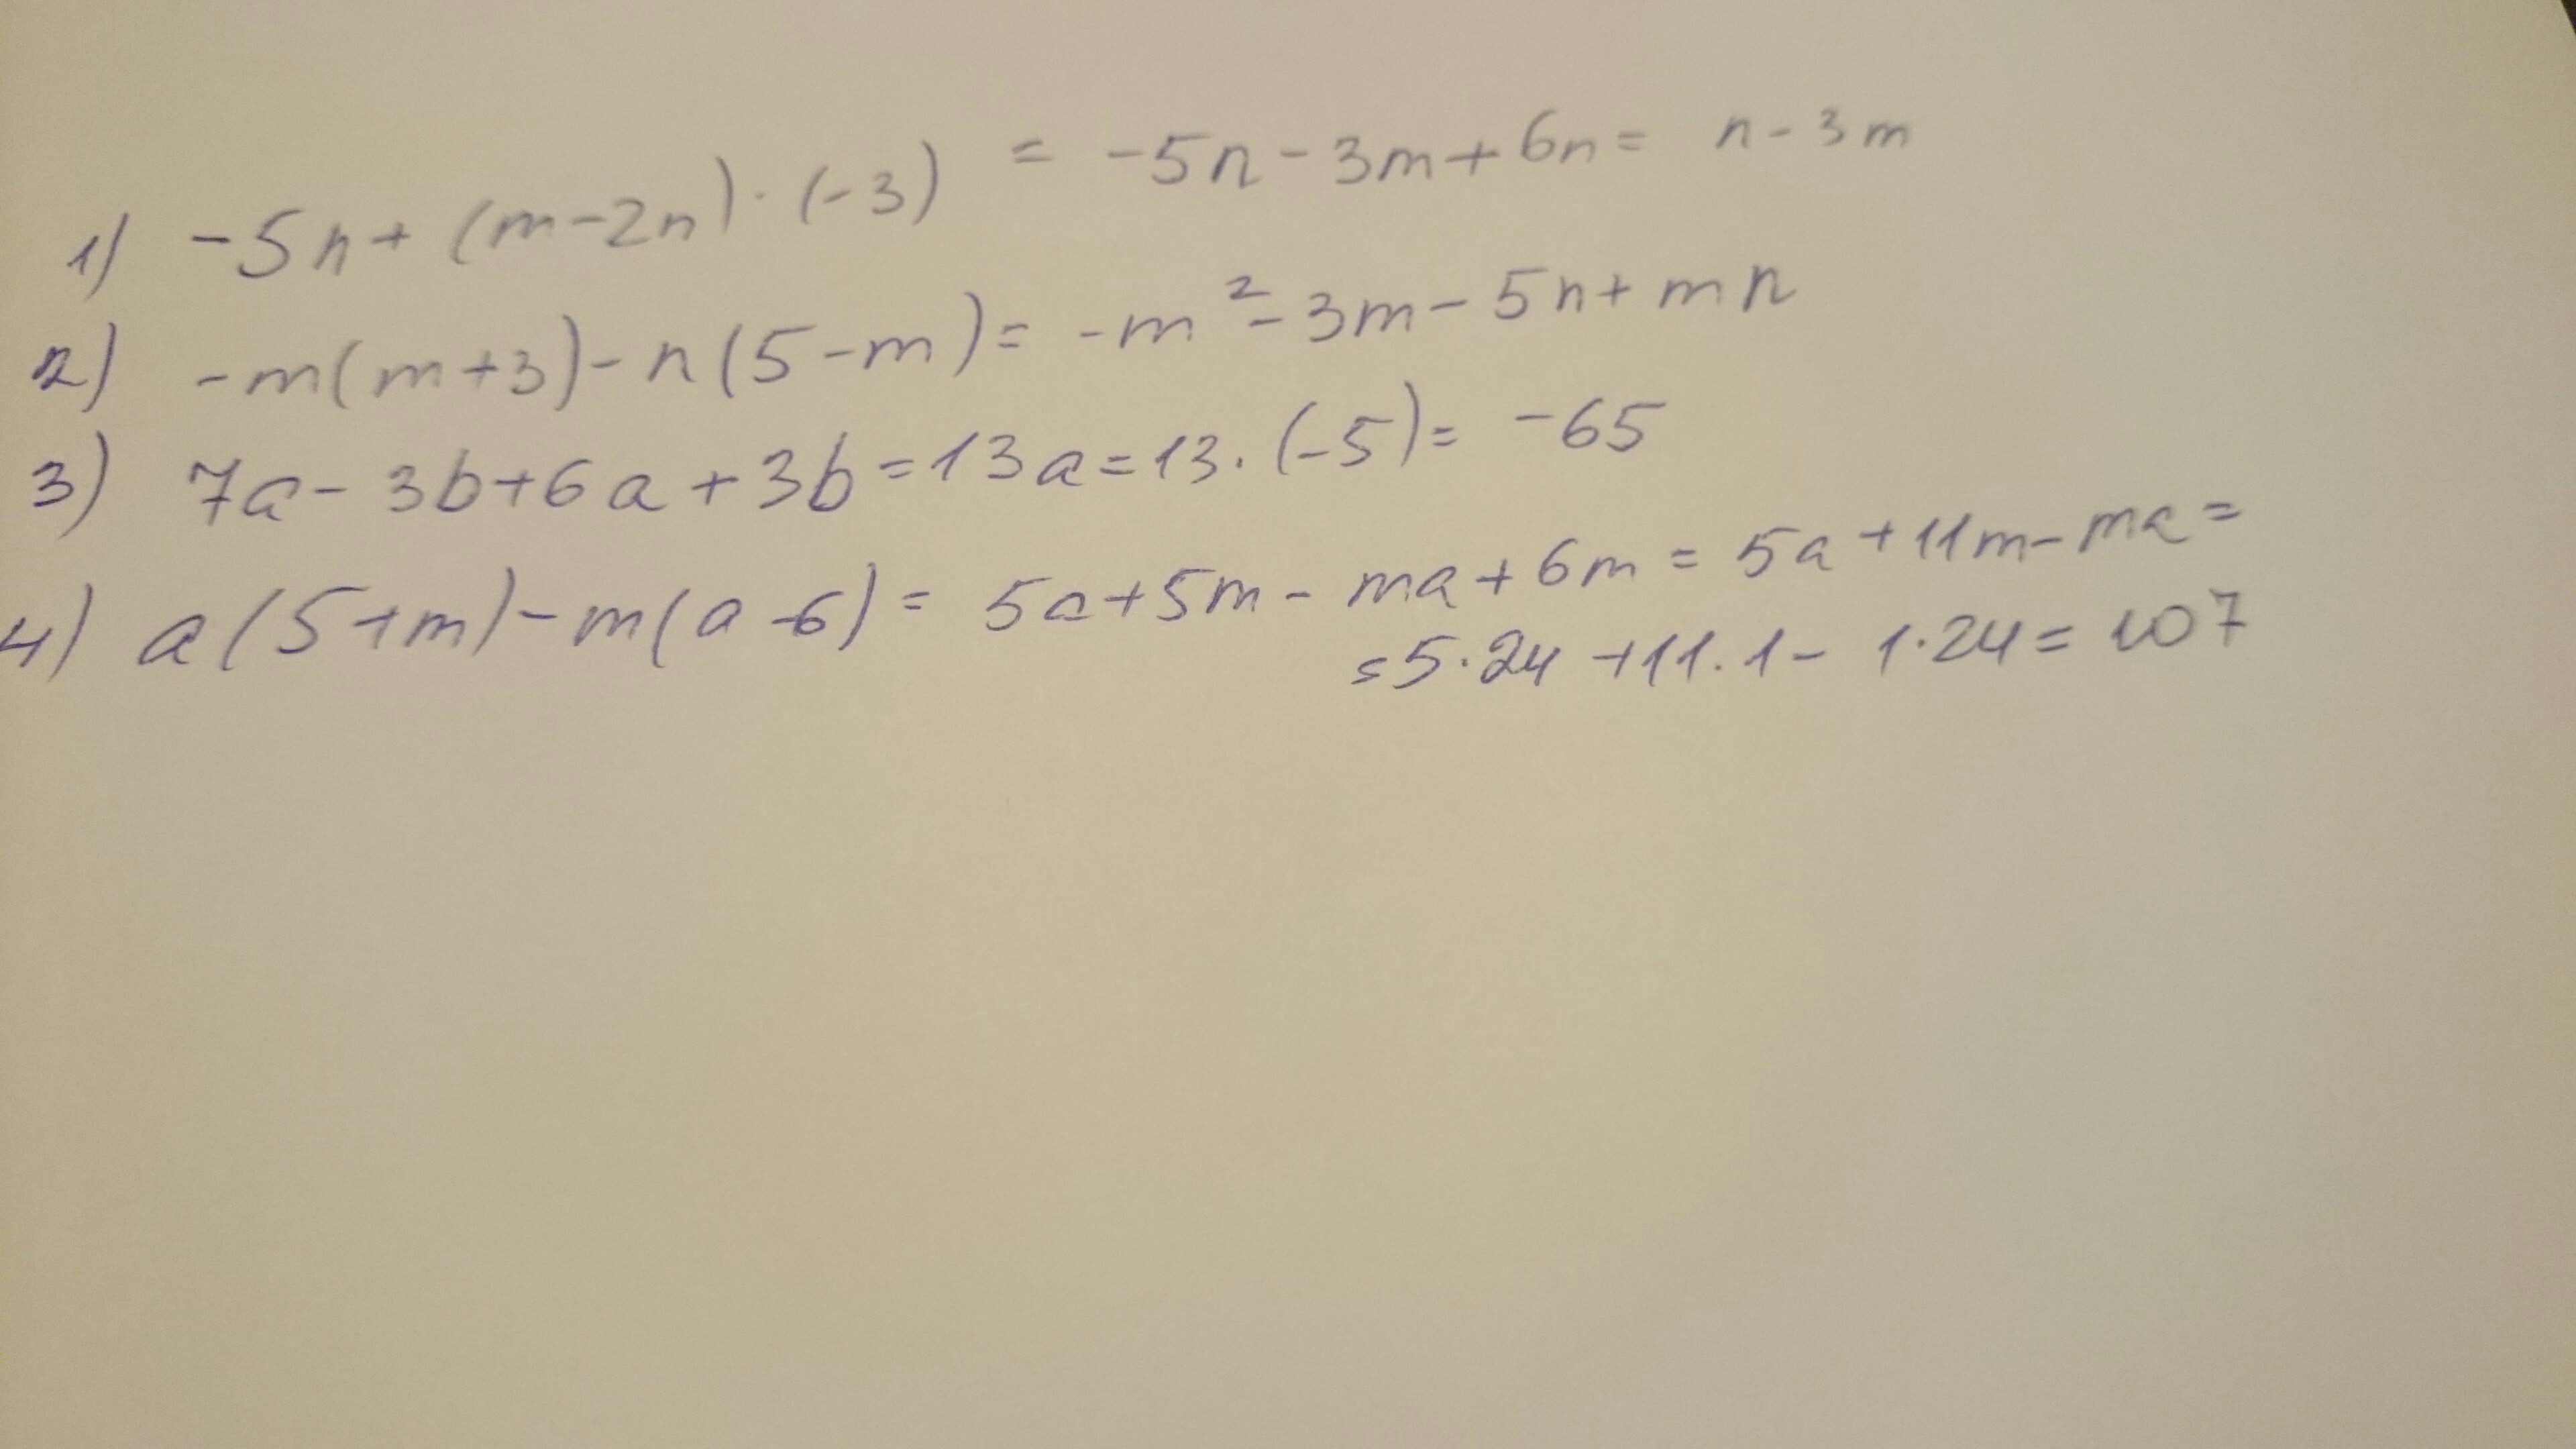 1) -5n + (m-2n)·(-3) = -5n - 3m + 6n = n - 3m
2) -m(m+3) - n(5-m) = -m² - 3m - 5n + mn
3) 7a - 3b + 6a + 3b = 13a = 13·(-5) = -65
4) a(5+m) - m(a-6) = 5a + 5m - ma + 6m = 5a + 11m - ma =
= 5·24 + 11·1 - 1·24 = 107